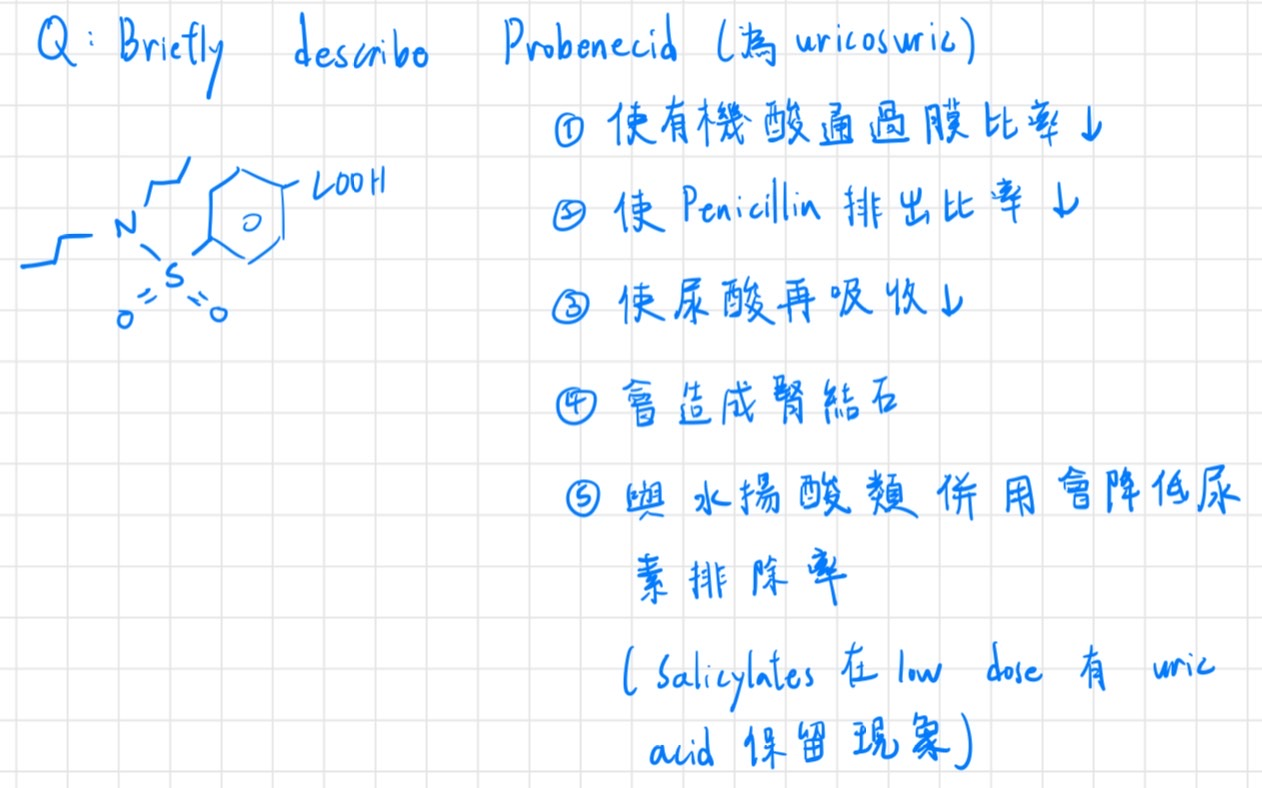 Q: Briefly describe Probenecid (為 uricosuric)
① 使有機酸通過膜比率↓
COOH
② 使 Penicillin 排出比率↓
N
S
O O
③ 使尿酸再吸收↓
④ 會造成腎結石
⑤ 與水揚酸類併用會降低尿
素排除率
(Salicylates 在 low dose 有 uric
acid 保留現象)